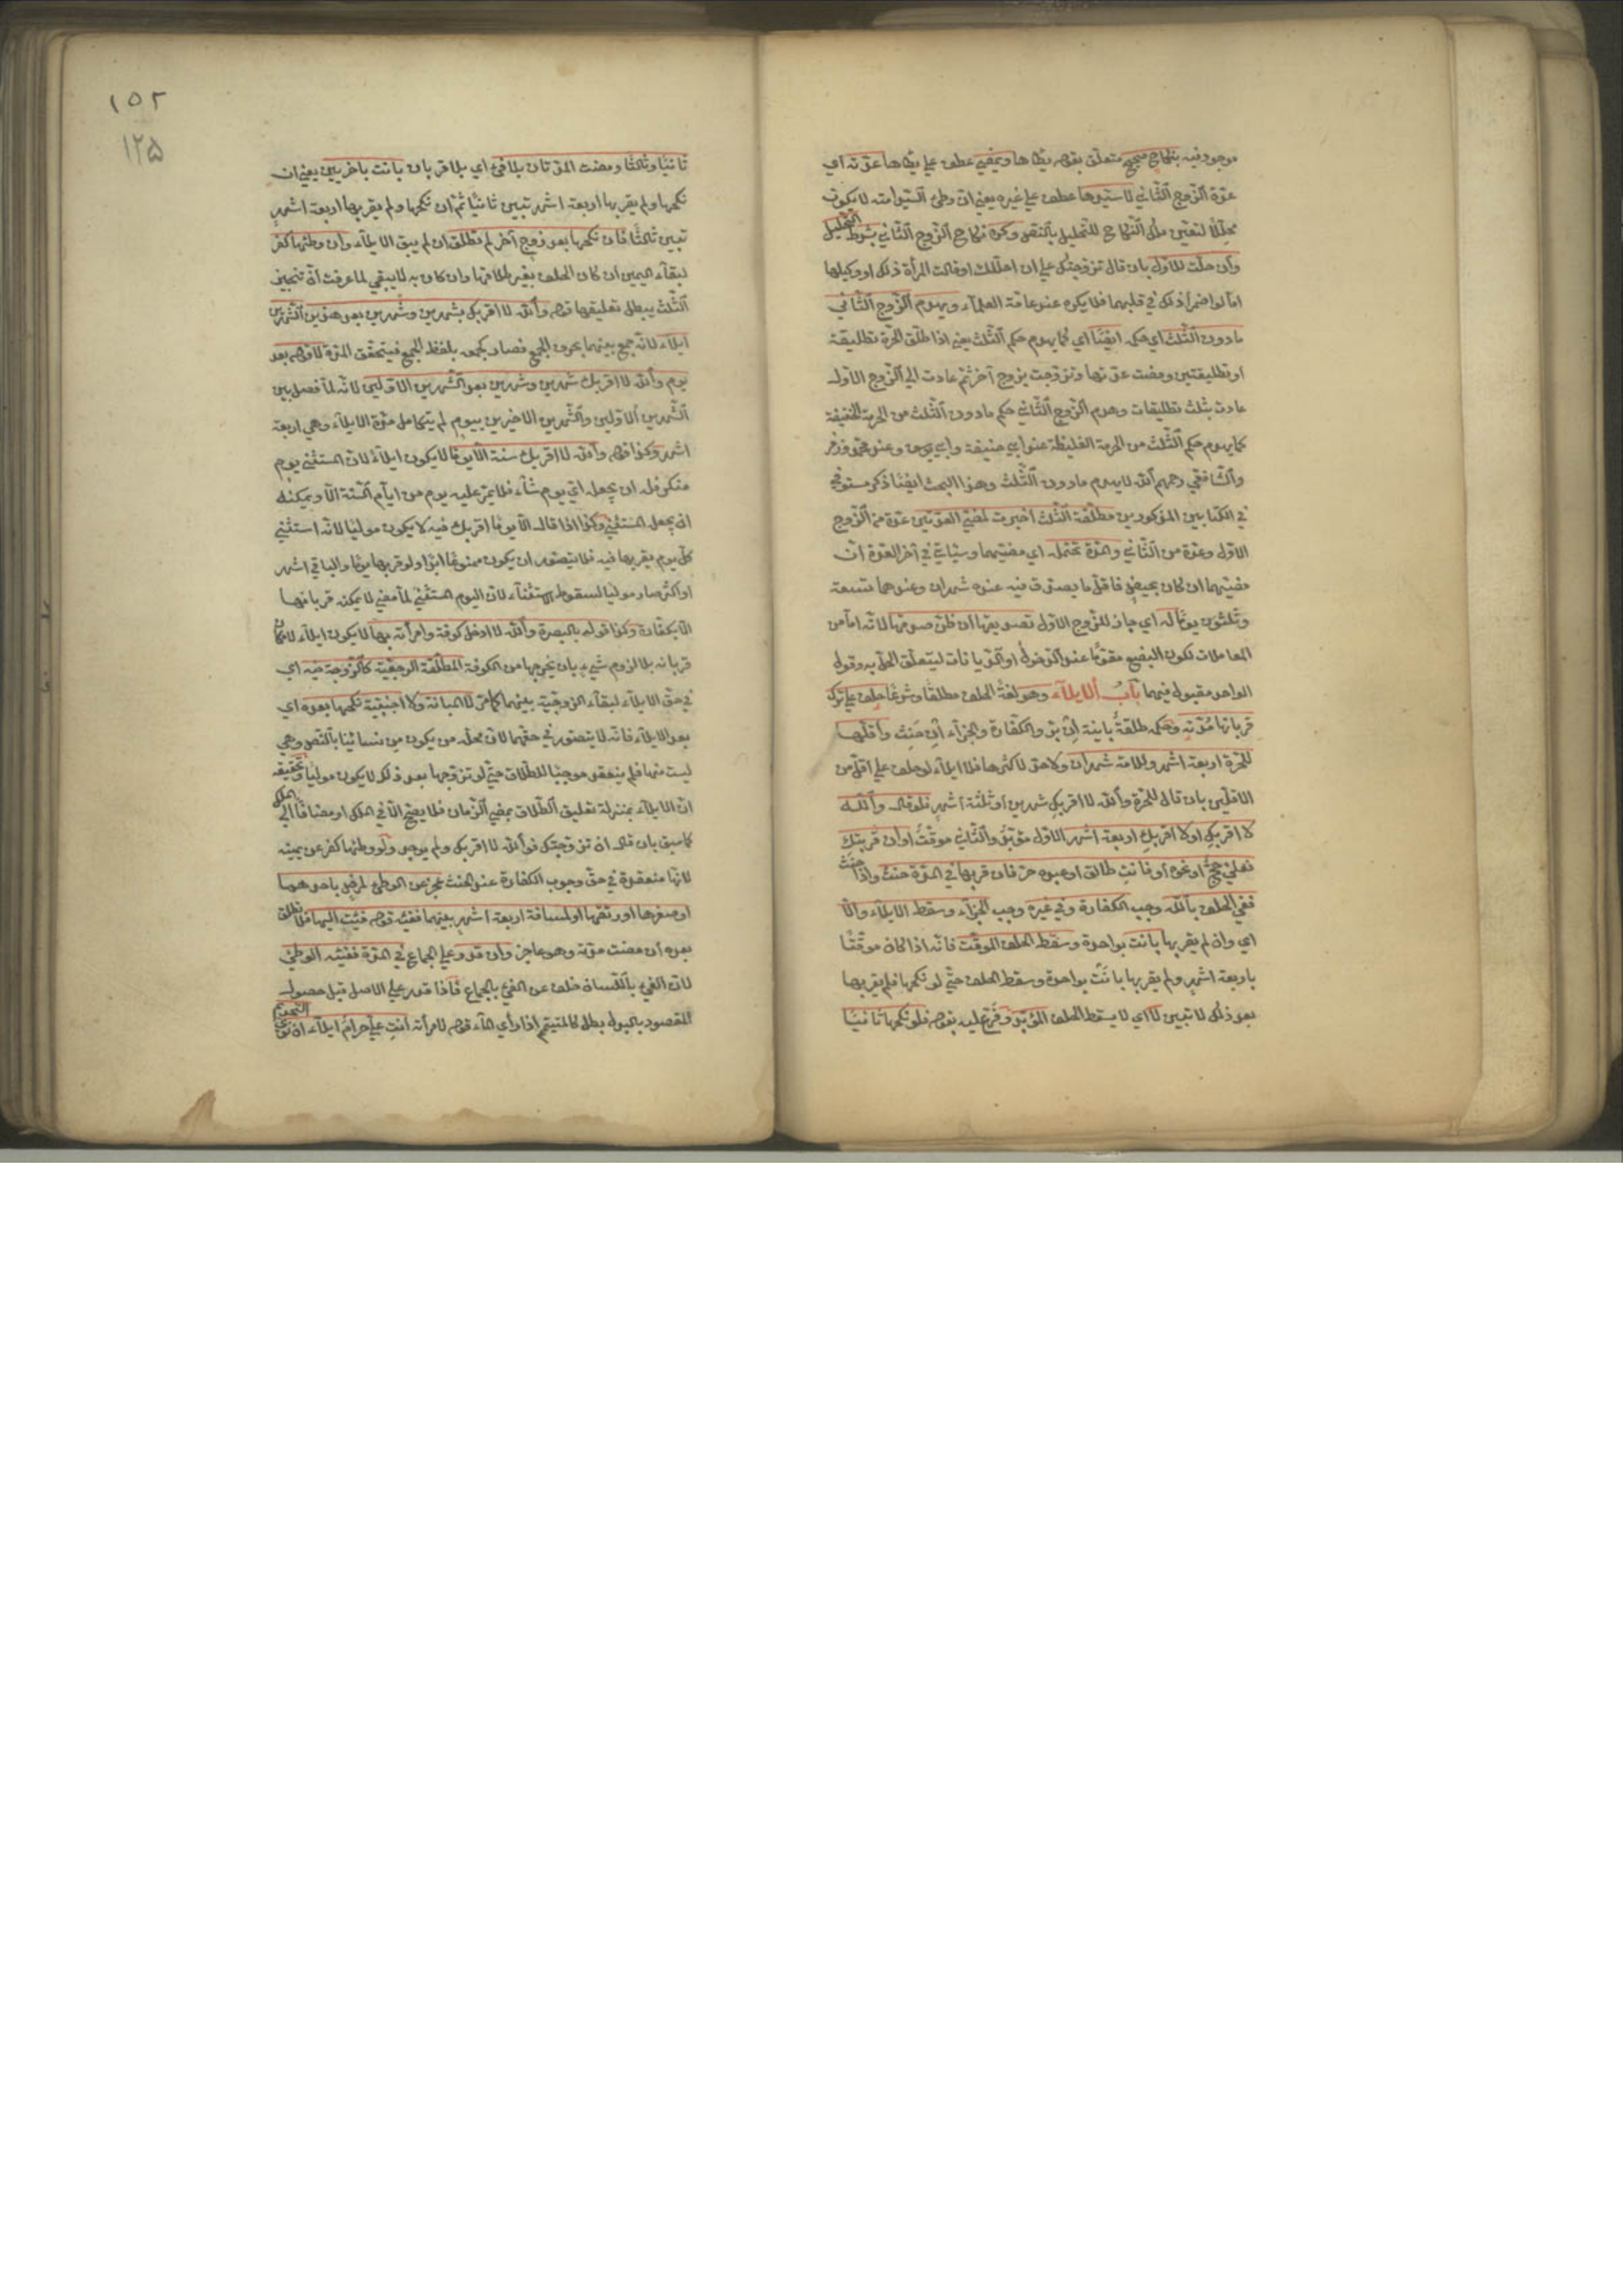 موجود فيه بنكاح صحيح متعلق بقوله يطاها ويمضي عطف علي يطاها عدته اي
عدة الزوج الثاني لا سيدها عطف علي غيره يعني ان وطئ السيد امته لا يكون
محللا لتعين ملك النكاح للتحليل بالنص وكره نكاح الزوج الثاني بشرط التحليل
وان حلت للاول بان قال تزوجتك علي ان احللك او قالت المراة ذلك او وكيلها
اما لو اضمرا ذلك في قلبهما فلا يكره عند عامة العلماء ويهدم الزوج الثاني
ما دون الثلث اي حكمه ايضا اي كما يهدم حكم الثلث يعني اذا طلق الحرة تطليقة
او تطليقتين ومضت عدتها وتزوجت بزوج آخر ثم عادت الي الزوج الاول
عادت بثلث تطليقات وهدم الزوج الثاني حكم ما دون الثلث من الحرمة الخفيفة
كما يهدم حكم الثلث من الحرمة الغليظة عند ابي حنيفة وابي يوسف وعند محمد وزفر
والشافعي رحمهم الله لا يهدم ما دون الثلث وهذا البحث ايضا ذكر مستوفي
في الكتابين المذكورين مطلقة الثلث اخبرت لمضي العدتين عدة من الزوج
الاول وعدة من الثاني والمدة تحتمله اي مضيهما وسياتي في آخر العدة ان
مضيهما ان كان بحيض فاقل ما يصدق فيه عنده شهران وعندهما تسعة
وثلثون يوما له اي جاز للزوج الاول تصديقها ان ظن صدقها لانه اما من
المعاملات لكون البضع متقوما عند الدخول او الديانات ليتعلق الحل به وقول
الواحد مقبول فيهما باب الايلاء وهو لغة الحلف مطلقا وشرعا حلف علي ترك
قربانها مدته وحكمه طلقة باينة ان بر والكفارة والجزاء ان حنث واقلها
للحرة اربعة اشهر وللامة شهران ولا حد لاكثرها فلا ايلاء لو حلف علي اقل من
الاقلين بان قال للحرة والله لا اقربك شهرين او ثلثة اشهر فلو قال والله
لا اقربك او لا اقربك اربعة اشهر الاول مؤبد والثاني موقت او ان قربتك
فعلي حج او نحوه او فانت طالق او عبده حر فان قربها في المدة حنث واذا حنث
ففي الحلف بالله وجب الكفارة وفي غيره وجب الجزاء وسقط الايلاء والا
اي وان لم يقربها بانت بواحدة وسقط الحلف الموقت فانه اذا كان موقتا
باربعة اشهر ولم يقربها بانت بواحدة وسقط الحلف حتي لو نكحها فلم يقربها
بعد ذلك لا تبين لا اي لا يسقط الحلف المؤبد وفرع عليه بقوله فلو نكحها ثانيا
١٥٢
١٢٥
ثانيا وثالثا ومضت المدتان بلا فئ اي بلا قربان بانت باخريين يعني ان
نكحها ولم يقربها اربعة اشهر تبين ثانيا ثم ان نكحها ولم يقربها اربعة اشهر
تبين ثالثا فان نكحها بعد زوج آخر لم تطلق ان لم يبق الايلاء وان وطئها كفر
لبقاء اليمين ان كان الحلف بغير طلاقها وان كان به لا يبقي لما عرفت ان تنجيز
الثلث يبطل تعليقها قوله والله لا اقربك شهرين وشهرين بعد هذين الشهرين
ايلاء لانه جمع بينهما بحرف الجمع فصار كجمعه بلفظ الجمع فيتحقق المدة لا قوله بعد
يوم والله لا اقربك شهرين وشهرين بعد الشهرين الاولين لانه لما فصل بين
الشهرين الاولين والشهرين الاخيرين بيوم لم يتكامل مدة الايلاء وهي اربعة
اشهر وكذا قوله والله لا اقربك سنة الا يوما لا يكون ايلاء لان المستثني يوم
منكر فله ان يجعله اي يوم شاء فلا يمر عليه يوم من ايام السنة الا ويمكنه
ان يجعل المستثني وكذا اذا قال الا يوما اقربك فيه لا يكون موليا لانه استثني
كل يوم يقربها فيه فلا يتصور ان يكون ممنوعا ابدا ولو قربها يوما والباقي اشهر
او اكثر صار موليا لسقوط الاستثناء لان اليوم المستثني لما مضي لا يمكنه قربانها
الا بكفارة وكذا قوله بالبصرة والله لا ادخل كوفة وامراته بها لا يكون ايلاء لامكان
قربانه بلا لزوم شيء بان يخرجها من الكوفة المطلقة الرجعية كالزوجة فيه اي
في حق الايلاء لبقاء الزوجية بينهما كما مر لا المبانة ولا اجنبية نكحها بعده اي
بعد الايلاء فانه لا يتصور في حقهما لان محله من يكون من نسائنا بالنص وهي
ليست منها فلم ينعقد موجبا للطلاق حتي لو تزوجها بعد ذلك لا يكون موليا وتحقيقه
ان الايلاء بمنزلة تعليق الطلاق بمضي الزمان فلا يصح الا في الملك او مضافا الي الملك
كما سبق بان قال ان تزوجتك فوالله لا اقربك ولم يوجد ولو وطئها كفر عن يمينه
لانها منعقدة في حق وجوب الكفارة عند الحنث عجز عن الوطئ لمرض باحدهما
او صغرها او رتقها او لمسافة اربعة اشهر بينهما ففيئه قوله فئت اليها فلا تطلق
بعده ان مضت مدته وهو عاجز وان قدر علي الجماع في المدة ففيئه الوطئ
لان الفئ باللسان خلف عن الفئ بالجماع فاذا قدر علي الاصل قبل حصول
المقصود بالبدل بطل كالمتيمم اذا راي الماء قوله لامراته انت علي حرام ايلاء ان نوي التحريم